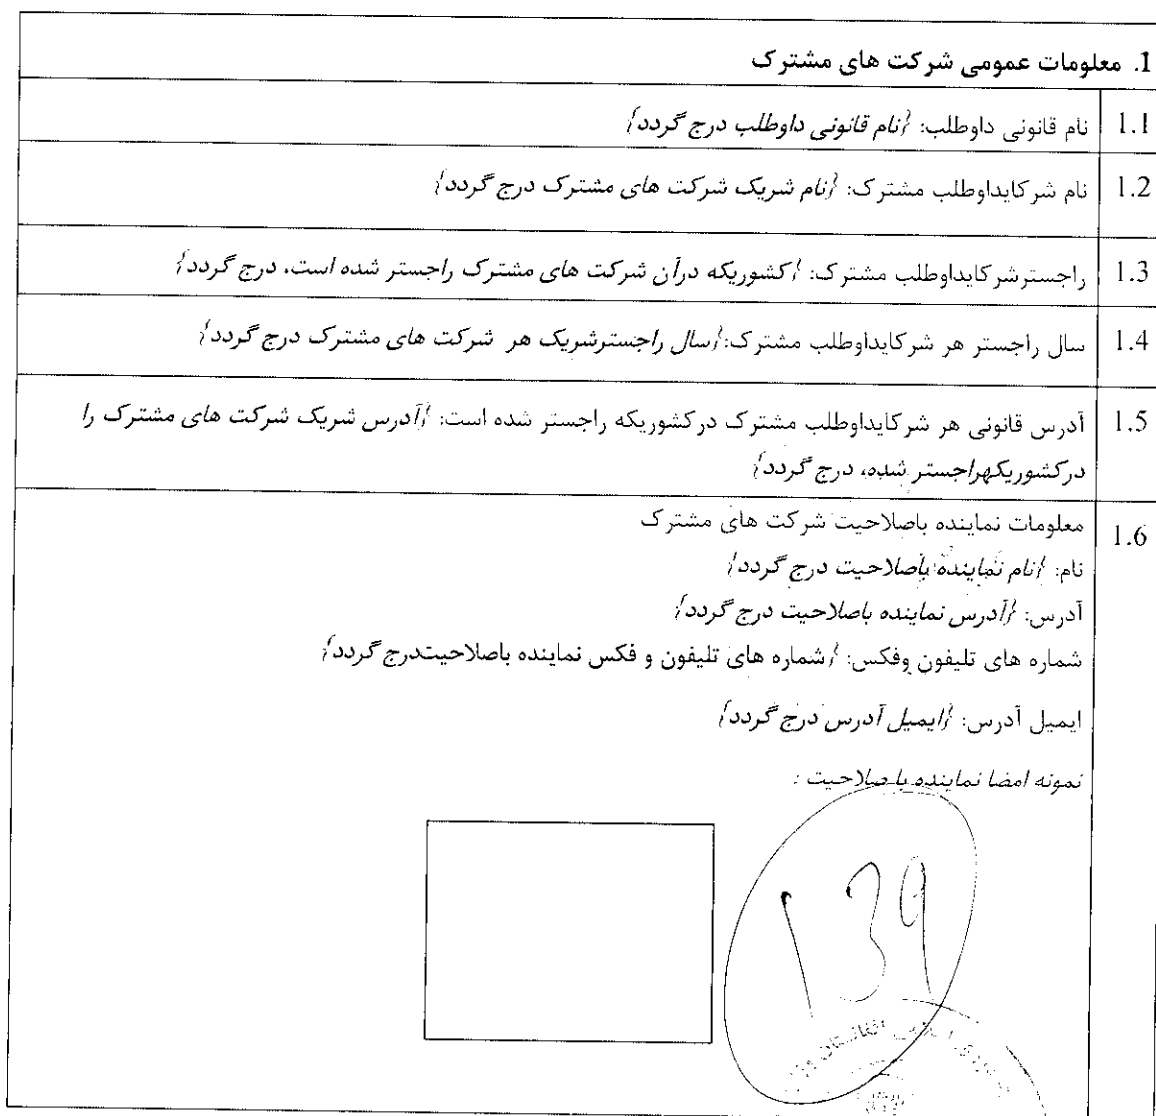 1. معلومات عمومی شرکت های مشترک
1.1 نام قانونی داوطلب: {نام قانونی داوطلب درج گردد}
1.2 نام شرکایداوطلب مشترک: {نام شریک شرکت های مشترک درج گردد}
1.3 راجسترشرکایداوطلب مشترک: {کشوریکه درآن شرکت های مشترک راجستر شده است، درج گردد}
1.4 سال راجستر هر شرکایداوطلب مشترک:{سال راجسترشریک هر شرکت های مشترک درج گردد}
1.5 آدرس قانونی هر شرکایداوطلب مشترک درکشوریکه راجستر شده است: {آدرس شریک شرکت های مشترک را
درکشوریکهراجستر شده، درج گردد}
1.6 معلومات نماینده باصلاحیت شرکت های مشترک
نام: {نام نماینده باصلاحیت درج گردد}
آدرس: {آدرس نماینده باصلاحیت درج گردد}
شماره های تلیفون وفکس: {شماره های تلیفون و فکس نماینده باصلاحیتدرج گردد}
ایمیل آدرس: {ایمیل آدرس درج گردد}
نمونه امضا نماینده با صلاحیت :
139
افغانستان